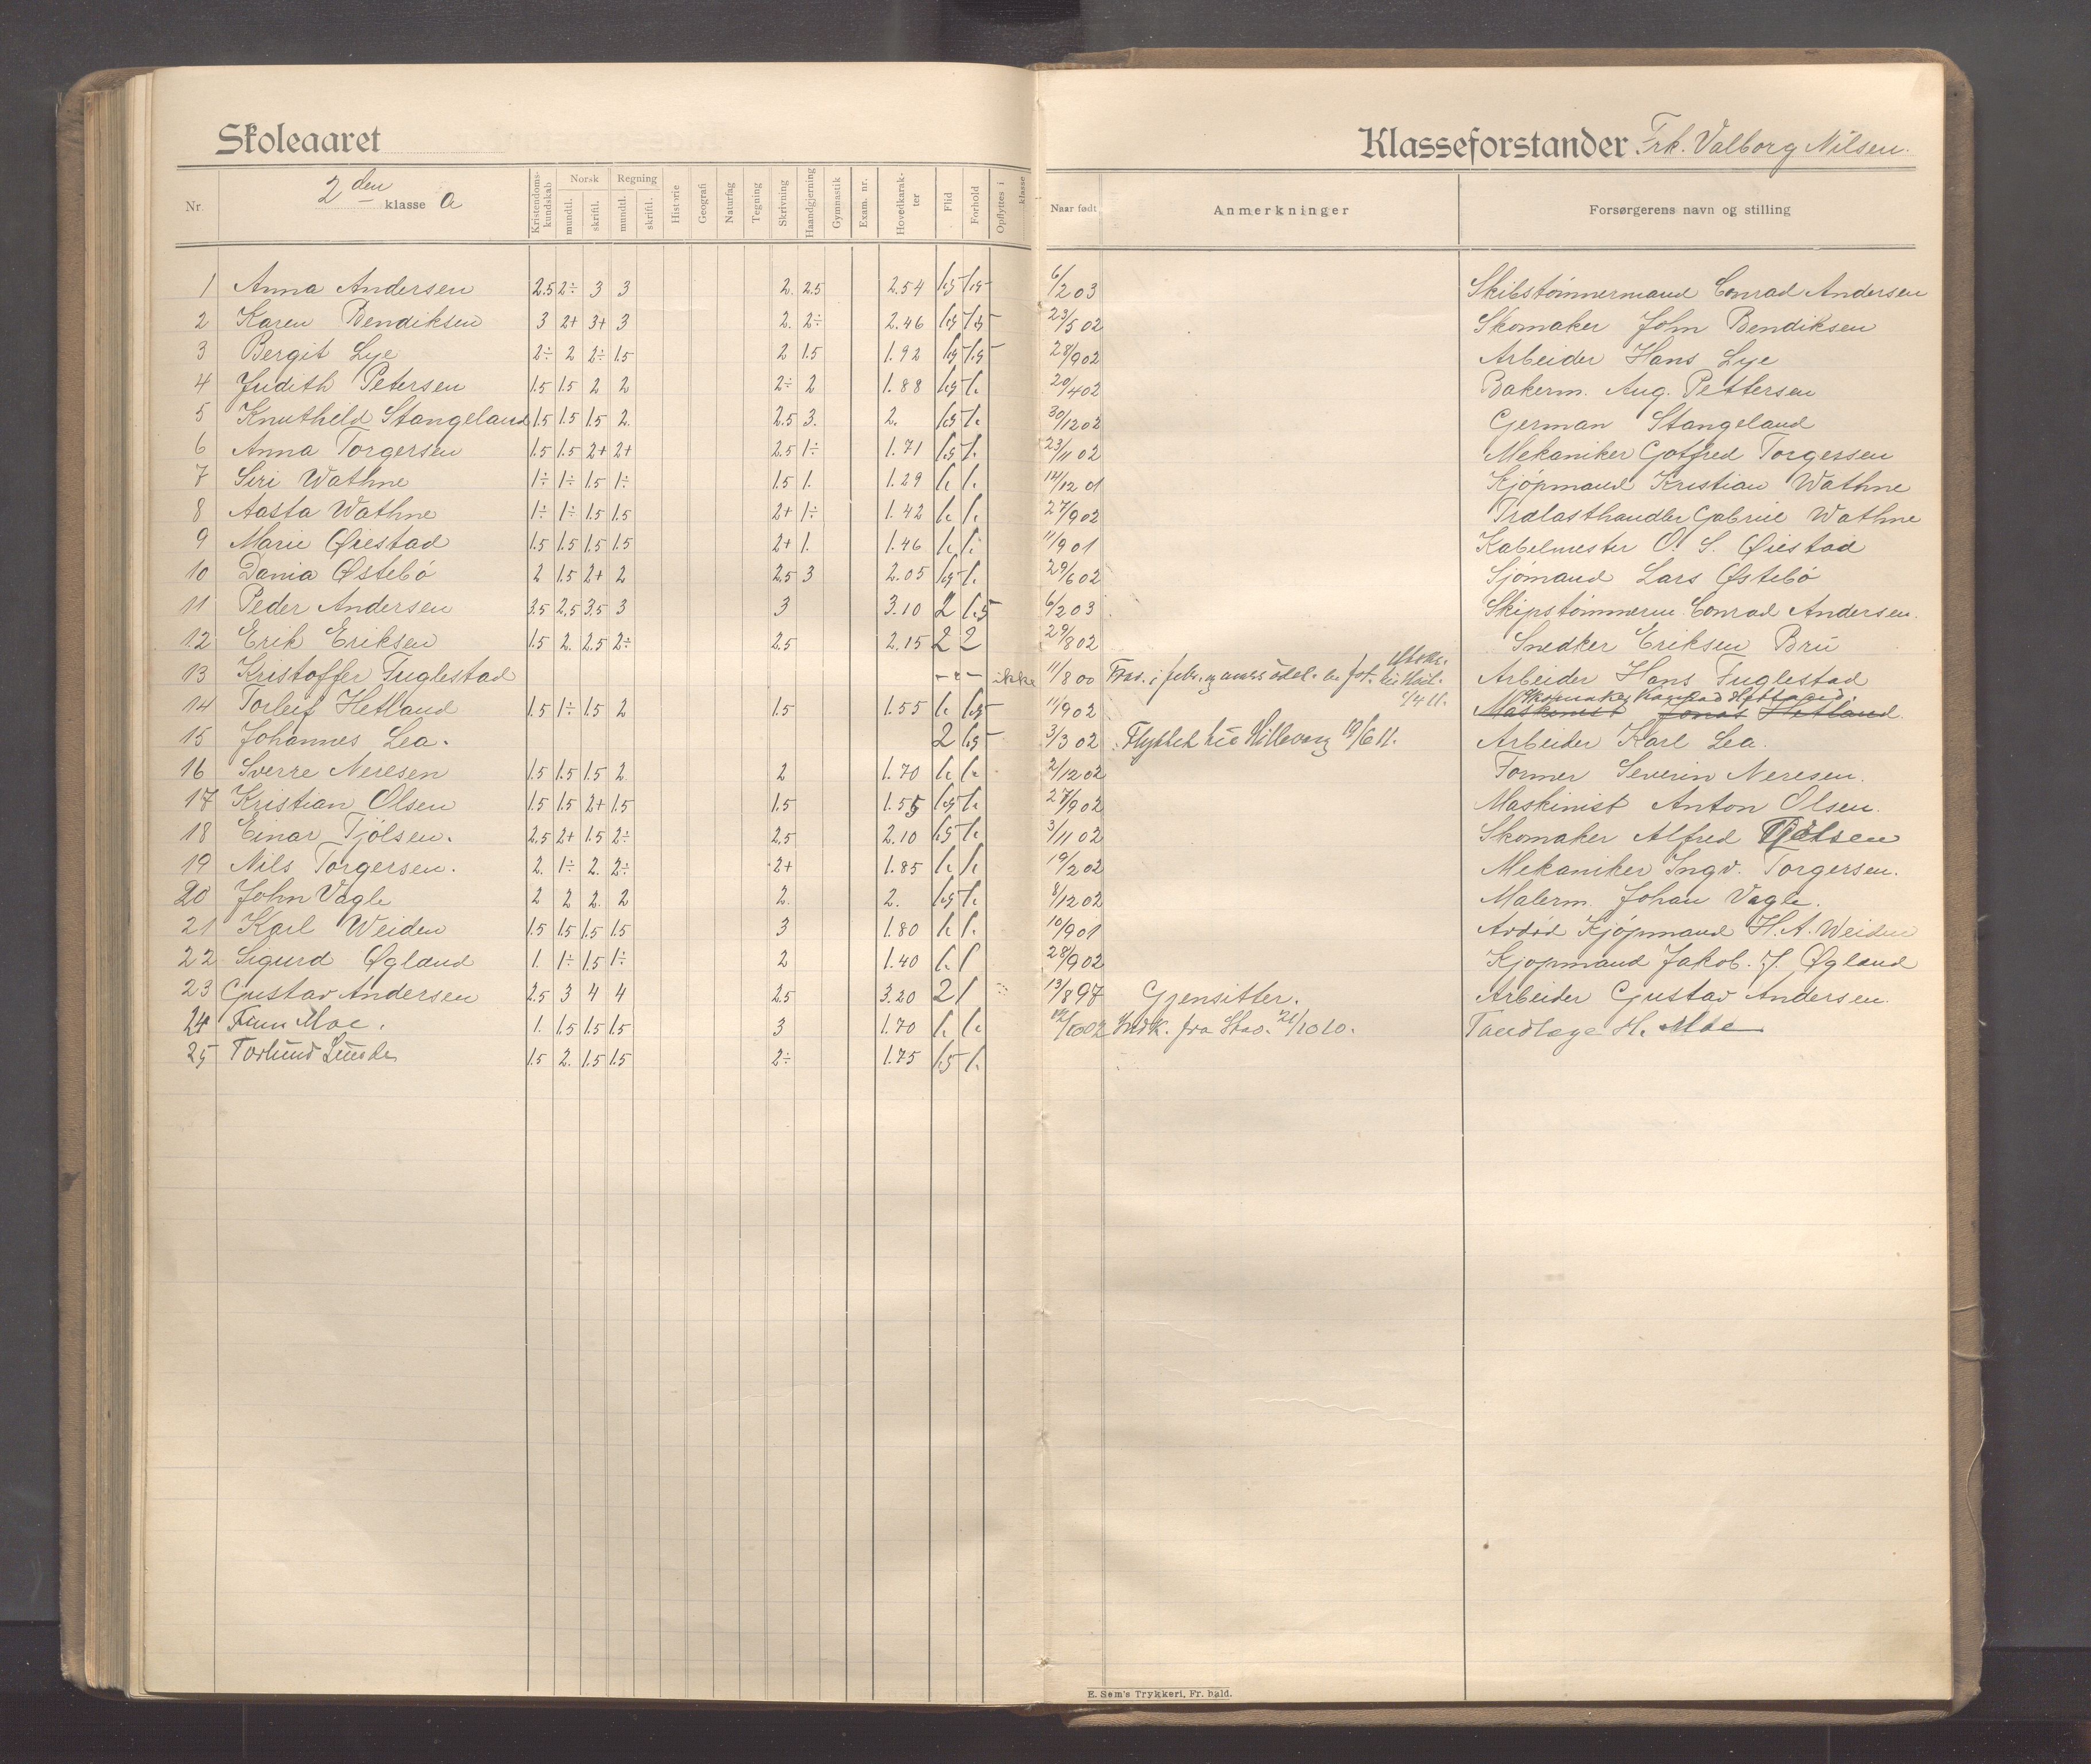 Skoleaaret
Klasseforstander Frk. Valborg Nilsen.
Nr. 2den klasse a Kristendomskundskab Norsk mundtl. skriftl. Regning mundtl. skriftl. Historie Geografi Naturfag Tegning Skrivning Haandgjerning Gymnastik Exam. nr. Hovedkarakter Flid Forhold Opflyttes i klasse Naar født Anmerkninger Forsørgerens navn og stilling
1 Anna Andersen 2.5 2÷ 3 3 2. 2.5 2.54 1.5 1.5 6/2 03 Skibstømmermand Conrad Andersen
2 Karen Bendiksen 3 2+ 3+ 3 2. 2÷ 2.46 1.5 1.5 23/5 02 Skomaker John Bendiksen
3 Bergit Lye 2÷ 2 2÷ 1.5 2 1.5 1.92 1.5 1.5 28/9 02 Arbeider Hans Lye
4 Judith Petersen 1.5 1.5 2 2 2÷ 2 1.88 1.5 1. 20/4 02 Bakerm. Aug. Pettersen
5 Knuthild Stangeland 1.5 1.5 1.5 2. 2.5 3. 2. 1.5 1. 30/12 02 German Stangeland
6 Anna Torgersen 1.5 1.5 2+ 2+ 2.5 1÷ 1.71 1.5 1. 23/11 02 Mekaniker Gotfred Torgessen
7 Siri Wathne 1÷ 1÷ 1.5 1÷ 1.5 1. 1.29 1. 1. 14/12 01 Kjøpmand Kristian Wathne
8 Aasta Wathne 1÷ 1÷ 1.5 1.5 2+ 1÷ 1.42 1. 1. 27/9 02 Trælasthandler Gabriel Wathne
9 Marie Øiestad 1.5 1.5 1.5 1.5 2+ 1. 1.46 1. 1. 11/9 01 Kabelmester O. S. Øiestad
10 Dania Østebö 2 1.5 2+ 2 2.5 3 2.05 1.5 1. 29/6 02 Sjömand Lars Østebö
11 Peder Andersen 3.5 2.5 3.5 3 3 3.10 2 1.5 6/2 03 Skipstömmerm Conrad Andersen.
12 Erik Eriksen 1.5 2. 2.5 2÷ 2.5 2.15 2 2 29/8 02 Snedker Eriksen Brü
13 Kristoffer Fuglestad - - - ikke 11/8 00 Arbeider Hans Fuglestad
14 Torleif Hetland 1.5 1÷ 1.5 2 1.5 1.55 1. 1.5 11/9 02 Maskinist Jonas Hetland.
15 Johannes Lea. 2 1.5 3/3 02 Flyttet til Hillevaag 19/6 11. Arbeider Karl Lea.
16 Sverre Neresen 1.5 1.5 1.5 2. 2 1.70 1. 1. 2/12 02 Former Severin Neresen.
17 Kristian Olsen 1.5 1.5 2+ 1.5 1.5 1.55 1.5 1. 27/9 02 Maskinist Anton Olsen.
18 Einar Tjölsen. 2.5 2+ 1.5 2÷ 2.5 2.10 1.5 1. 3/11 02 Skomaker Alfred Tjölsen
19 Nils Torgersen. 2. 1÷ 2. 2÷ 2+ 1.85 1. 1. 19/2 02 Mekaniker Ingv. Torgersen.
20 John Vagle 2 2 2. 2 2. 2. 1.5 1. 8/12 02 Malerm. Johan Vagle.
21 Karl Weiden 1.5 1.5 1.5 1.5 3 1.80 1. 1. 10/9 01 Avdød Kjöpmand H. A. Weiden
22 Sigurd Øgland 1. 1÷ 1.5 1÷ 2 1.40 1. 1 28/9 02 Kjøpmand Jakob. J. Øgland
23 Gustav Andersen 2.5 3 4 4 2.5 3.20 2 1 13/8 97 Gjensitter. Arbeider Gustav Andersen.
24 Finn Moe. 1. 1.5 1.5 1.5 3 1.70 1. 1. 12/10 02 Indk. fra Stav. 21/10 10. Tandlæge H. Moe
25 Torlund Lunde 1.5 2. 1.5 1.5 2÷ 1.75 1.5 1.
E. Søm's Trykkeri, Fr. hald.